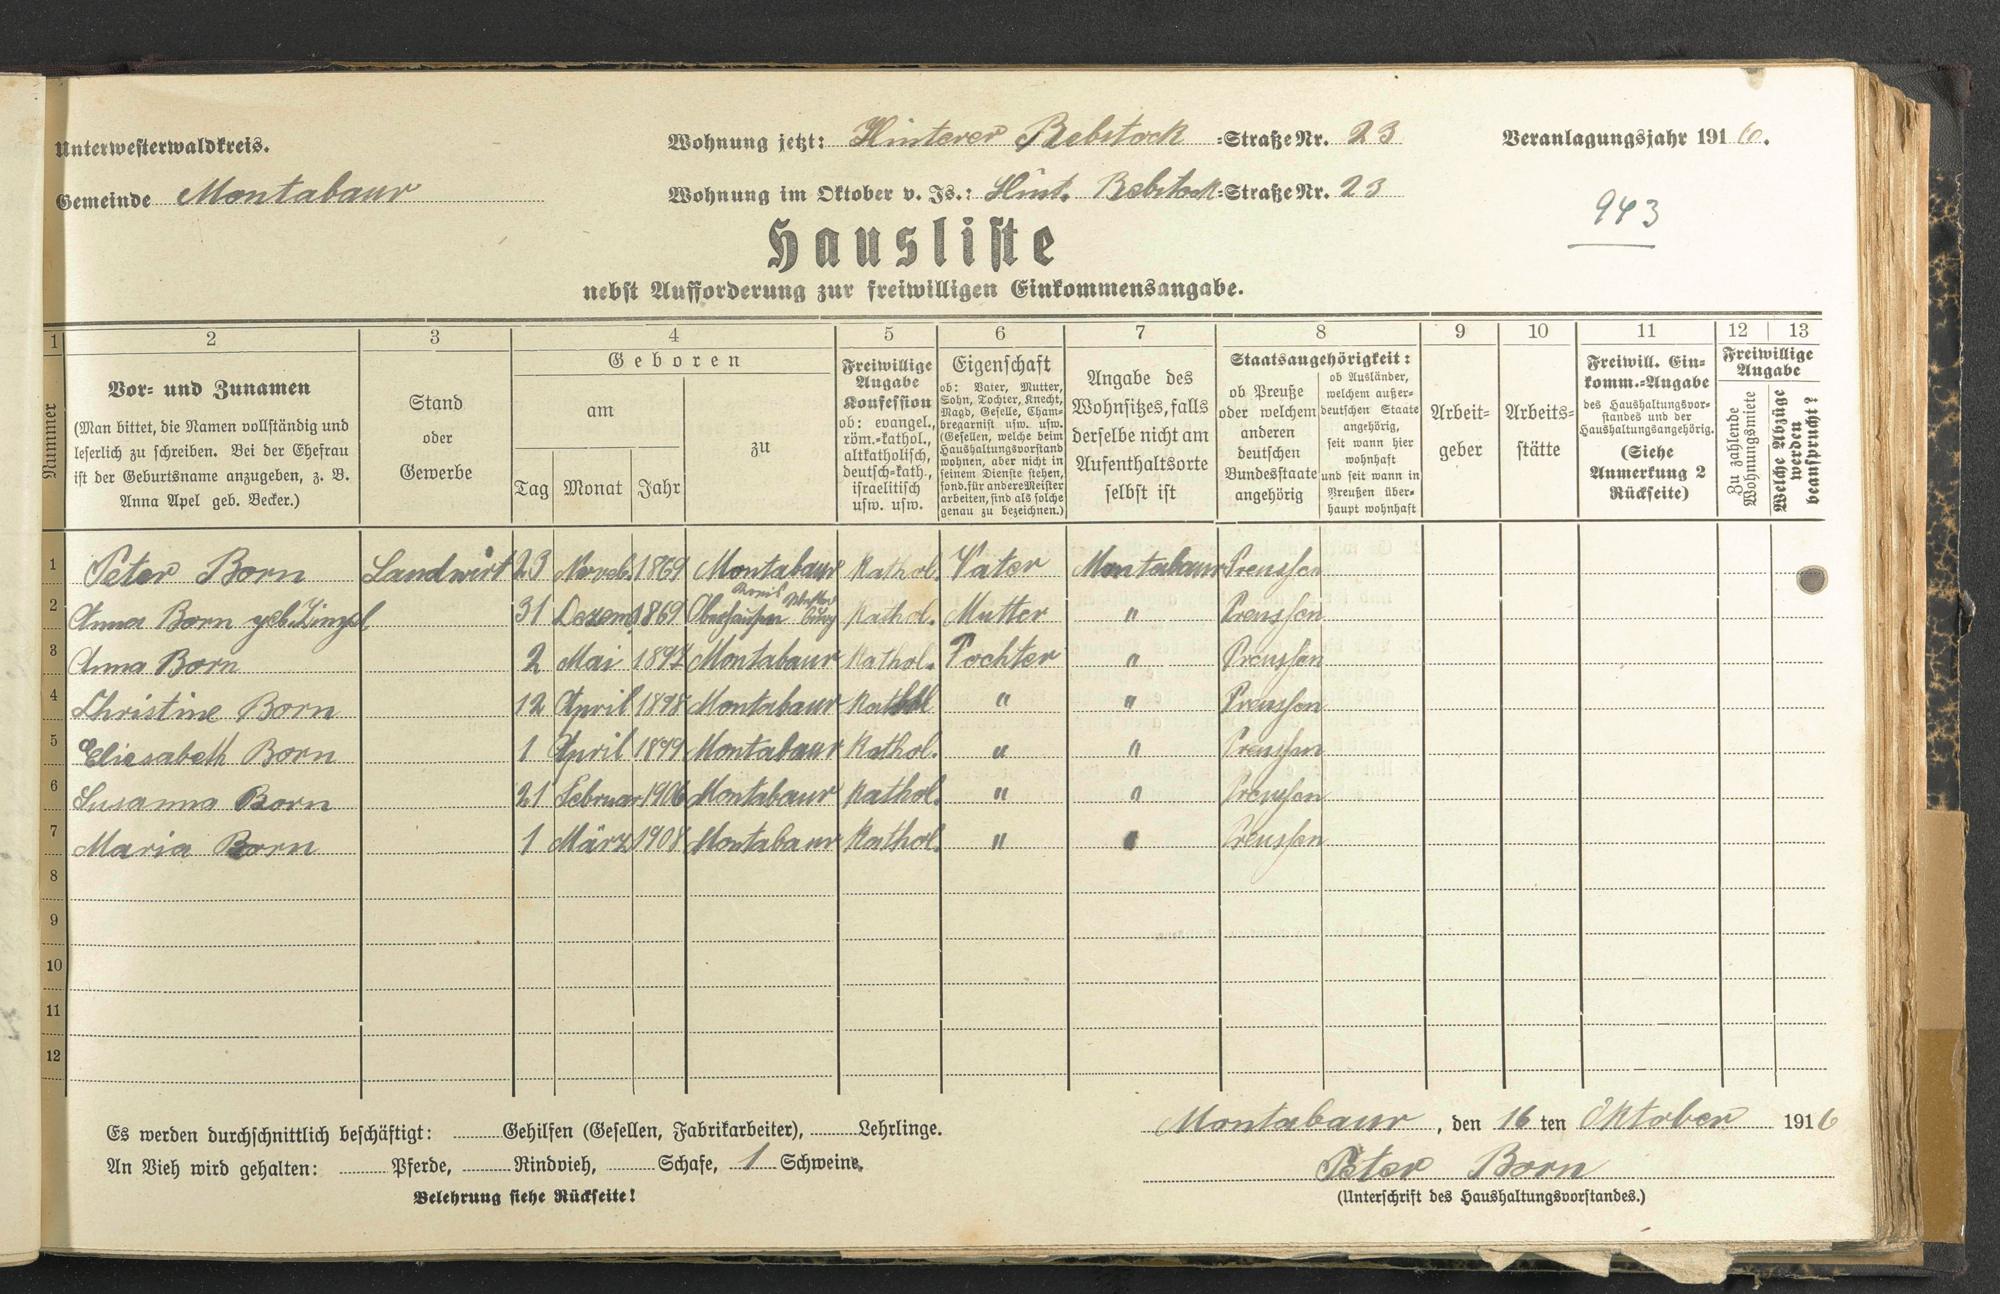 Unterwesterwaldkreis.
Wohnung jetzt: Hinterer Rebstock =Straße Nr. 23
Veranlagungsjahr 1916.
Gemeinde Montabaur
Wohnung im Oktober v. Js.: Hint. Rebstock =Straße Nr. 23
943
Hausliste
nebst Aufforderung zur freiwilligen Einkommensangabe.
1 2 3 4 5 6 7 8 9 10 11 12 13
Nummer
Vor- und Zunamen
(Man bittet, die Namen vollständig und
leserlich zu schreiben. Bei der Ehefrau
ist der Geburtsname anzugeben, z. B.
Anna Apel geb. Becker.)
Stand
oder
Gewerbe
Geboren
am
Tag Monat Jahr
zu
Freiwillige
Angabe
Konfession
ob: evangel.,
röm.-kathol.,
altkatholisch,
deutsch-kath.,
israelitisch
usw. usw.
Eigenschaft
ob: Vater, Mutter,
Sohn, Tochter, Knecht,
Magd, Geselle, Cham-
bregarnist usw. usw.
(Gesellen, welche beim
Haushaltungsvorstand
wohnen, aber nicht in
seinem Dienste stehen,
sond. für andere Meister
arbeiten, sind als solche
genau zu bezeichnen.)
Angabe des
Wohnsitzes, falls
derselbe nicht am
Aufenthaltsorte
selbst ist
Staatsangehörigkeit:
ob Preuße
oder welchem
anderen
deutschen
Bundesstaate
angehörig
ob Ausländer,
welchem außer-
deutschen Staate
angehörig,
seit wann hier
wohnhaft
und seit wann in
Preußen über-
haupt wohnhaft
Arbeit-
geber
Arbeits-
stätte
Freiwill. Ein-
komm.-Angabe
des Haushaltungsvor-
standes und der
Haushaltungsangehörig.
(Siehe
Anmerkung 2
Rückseite)
Freiwillige
Angabe
Zu zahlende
Wohnungsmiete
Welche Abzüge
werden
beansprucht?
1 Peter Born Landwirt 23 Noveb. 1869 Montabaur Kathol. Vater Montabaur Preussen
2 Anna Born geb. Zingel 31 Dezem. 1869 Oberhausen Kathol. Mutter " Preussen
3 Anna Born 2 Mai 1897 Montabaur Kathol. Tochter " Preussen
4 Christine Born 12 April 1898 Montabaur Kathol " " Preussen
5 Eliesabeth Born 1 April 1899 Montabaur Kathol. " " Preussen
6 Susanna Born 21 Februar 1906 Montabaur Kathol. " " Preussen
7 Maria Born 1 März 1908 Montabaur Kathol. " " Preussen
8
9
10
11
12
Es werden durchschnittlich beschäftigt: Gehilfen (Gesellen, Fabrikarbeiter), Lehrlinge.
An Vieh wird gehalten: Pferde, Rindvieh, Schafe, 1 Schweine.
Belehrung siehe Rückseite!
Montabaur, den 16 ten Oktober 1916
Peter Born
(Unterschrift des Haushaltungsvorstandes.)